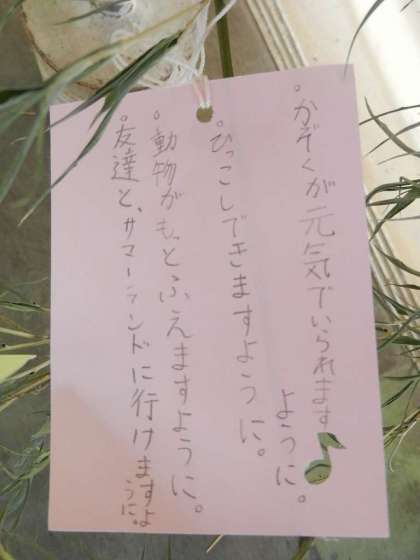 。かぞくが元気でいられます
ように。
。ひっこしできますように。
。動物がもっとふえますように。
。友達と、サマーランドに行けますよ
うに。